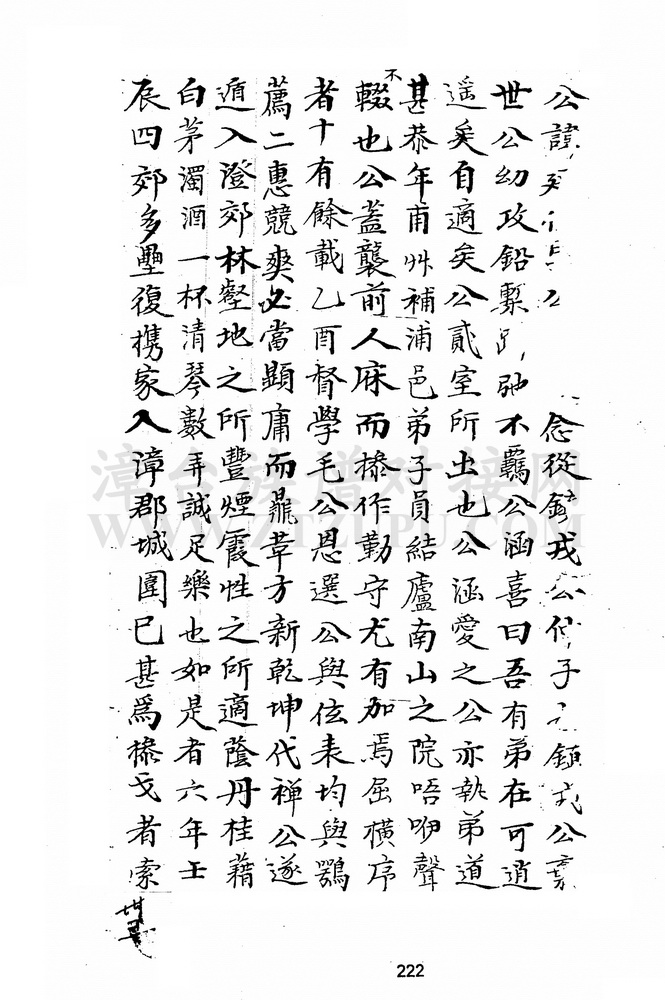 公諱
公
念從鎮戎公
子
鎮戎公
世公幼攻鉛槧
弛不羈公涵喜曰吾有弟在可逍
遥矣自適矣公貳室所出也公涵愛之公亦執弟道
甚恭年甫艸補浦邑弟子員結廬南山之院唔咿聲
不輟也公蓋襲前人庥而摻作勤守尤有加焉屈横序
者十有餘載乙酉督學毛公恩選公與伭表均與鶚
薦二惠競爽必當顯庸而鼎革方新乾坤代禅公遂
遁入澄郊林壑地之所豐煙霞性之所適蔭丹桂藉
白茅濁酒一杯清琴數弄誠足樂也如是者六年壬
辰四郊多壘復携家入漳郡城圍已甚爲摻戈者索
漳台族谱对接网
WWW.ZTZUPU.COM
222